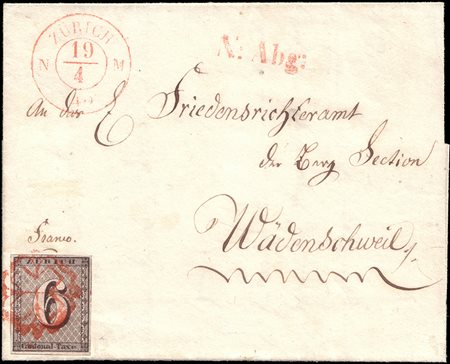 ZÜRICH
19
4
N M
N: Abg:
An das E. Friedensrichteramt
der Berg Section
Wädenschweil
Franco.
ZÜRICH
6
Cantonal-Taxe